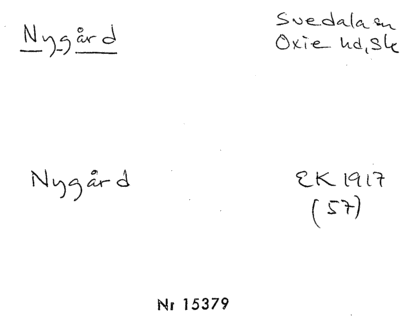 Nygård
Svedala sn
Oxie hd, Sk
Nygård
EK 1917
(57)
Nr 15379